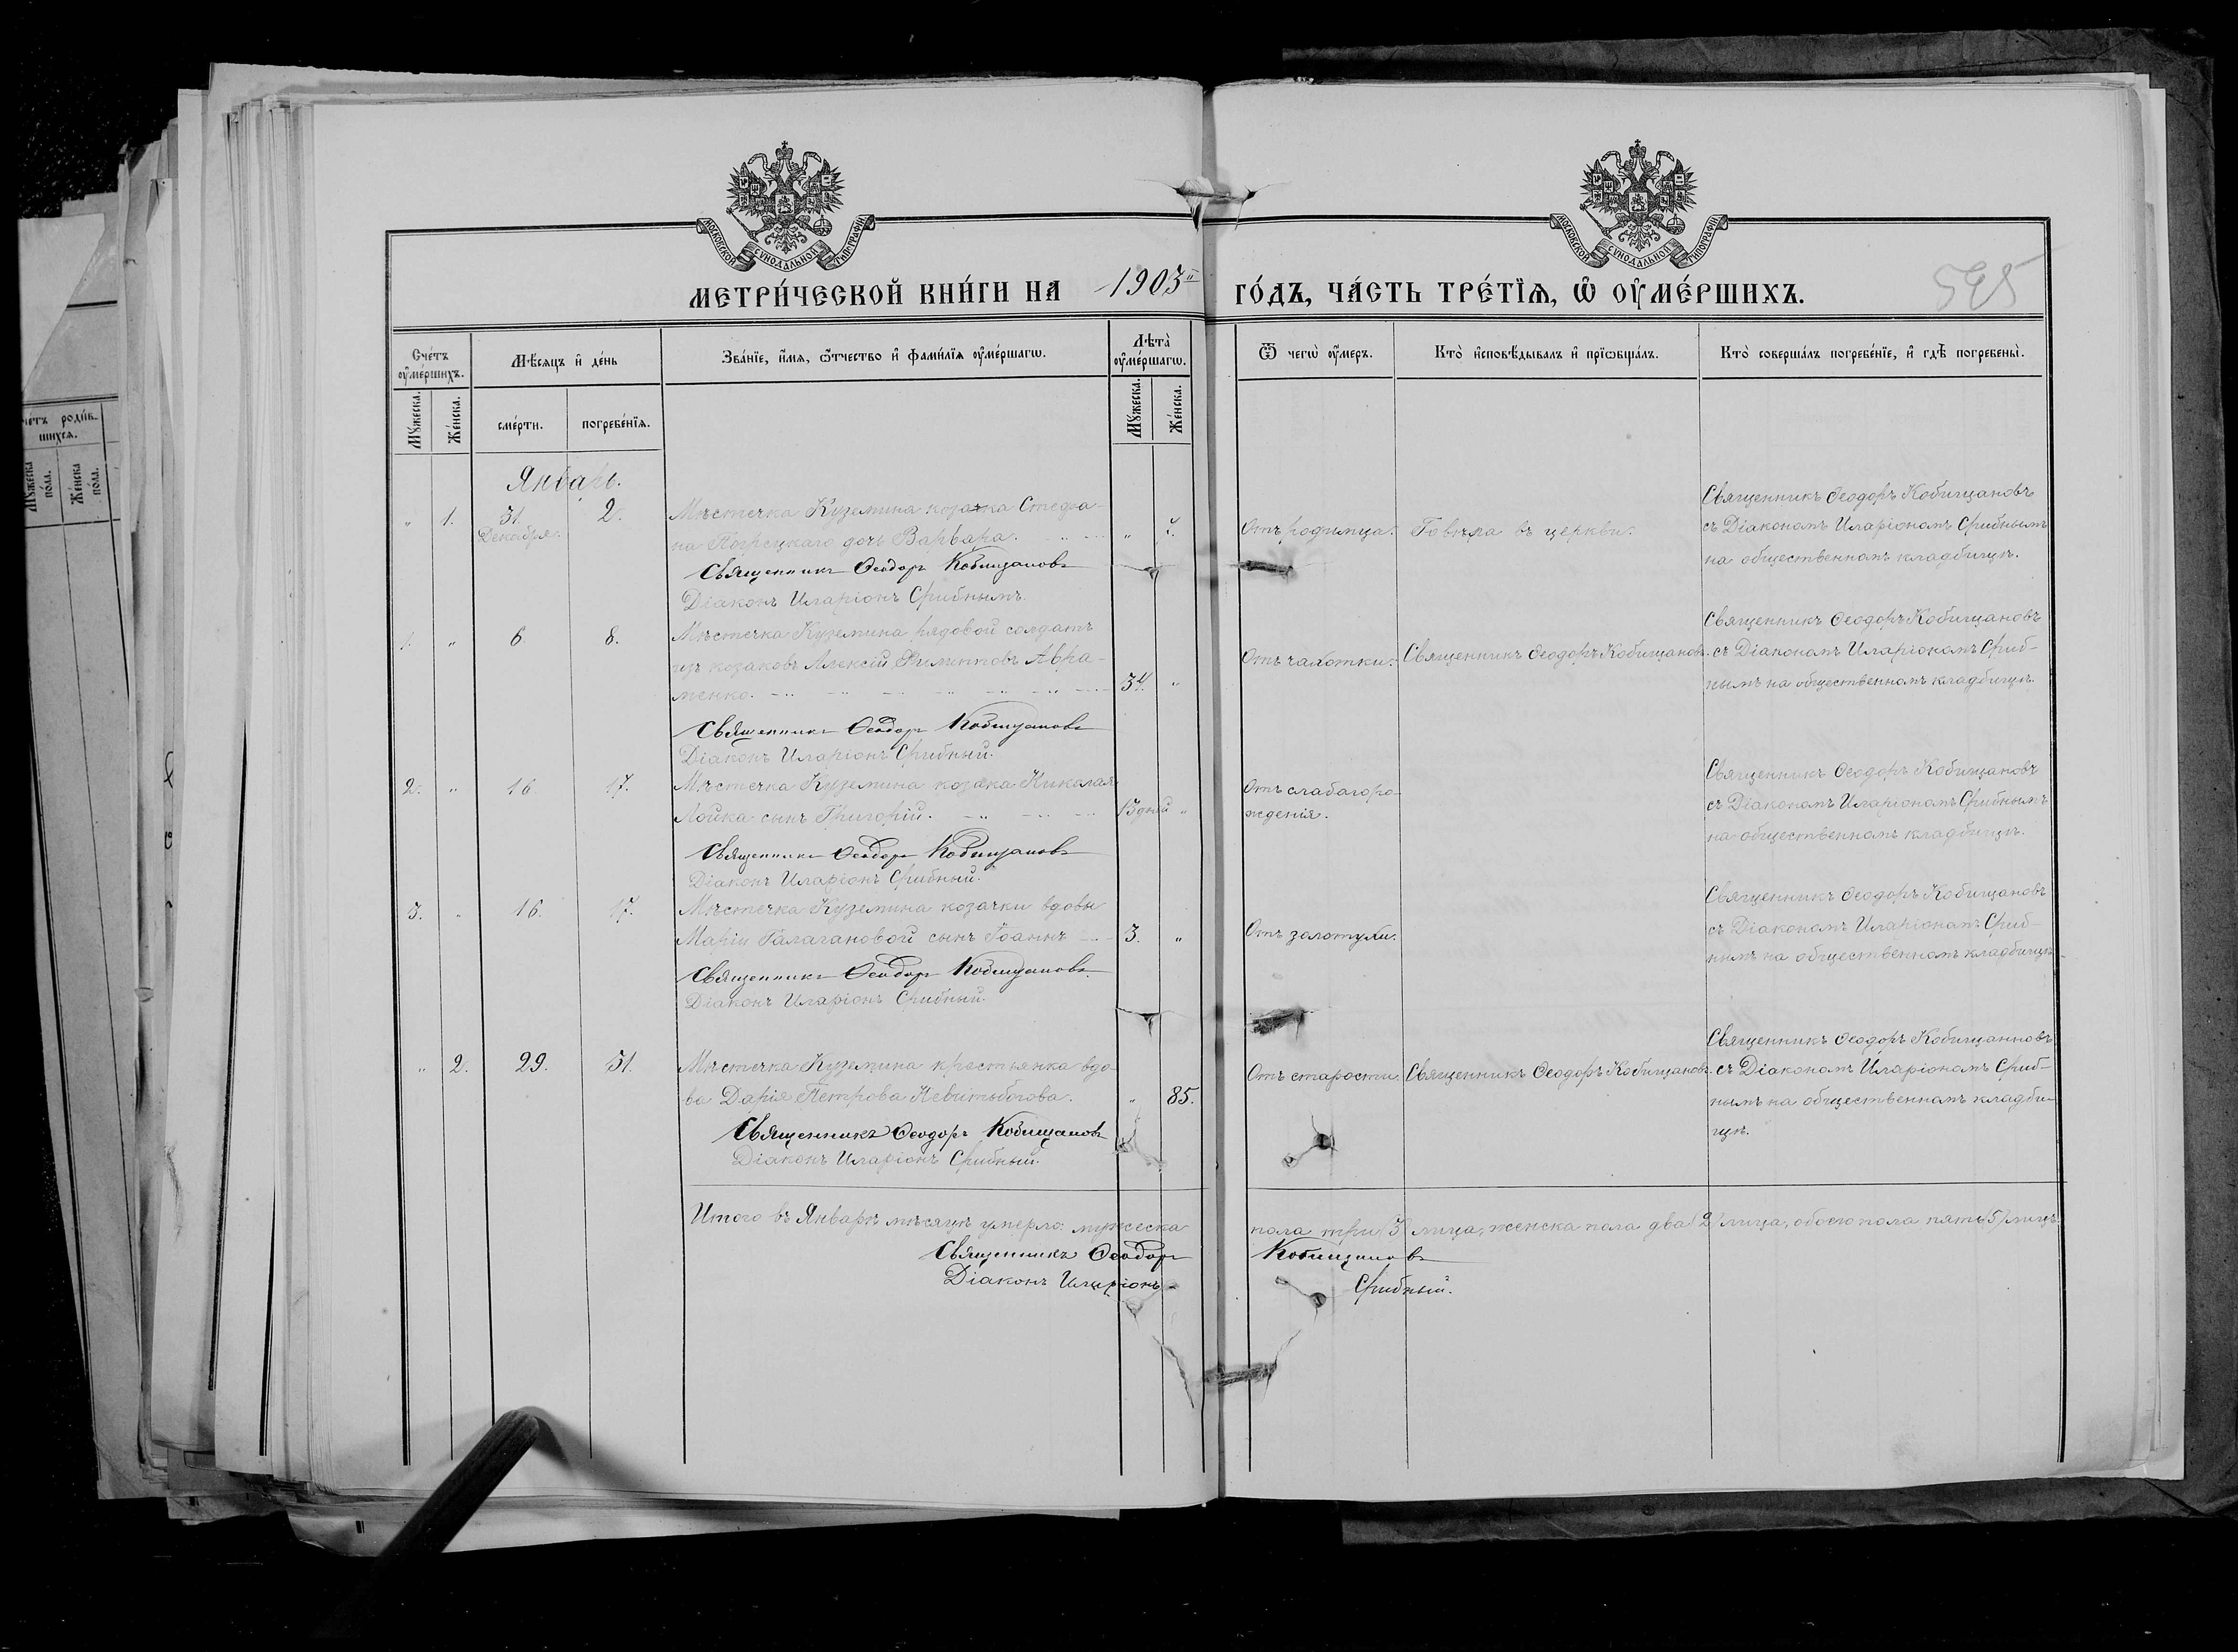 МОСКОВСКОЙ СѴНОДАЛЬНОЙ ТИПОГРАФІИ
МОСКОВСКОЙ СѴНОДАЛЬНОЙ ТИПОГРАФІИ
МЕТРИ́ЧЕСКОЙ КНИ́ГИ НА 1903й ГО́ДЪ, ЧА́СТЬ ТРЕ́ТЇѦ, Ѡ҆ ОУ҆МЕ́РШИХЪ.
595
Сче́тъ оу҆ме́ршихъ.
Мѣ́сѧцъ и҆ де́нь
Зва́нїе, и҆́мѧ, ѻ҆́тчество и҆ фами́лїѧ оу҆ме́ршагѡ.
Лѣта̀ оу҆ме́ршагѡ.
Ѿ чегѡ̀ оу҆́меръ.
Кто̀ и҆сповѣ́дывалъ и҆ прїѡбща́лъ.
Кто̀ соверша́лъ погребе́нїе, и҆ гдѣ̀ погребены̀.
Мꙋ́жеска.
Же́нска.
сме́рти.
погребе́нїѧ.
Мꙋ́жеска.
Же́нска.
Январь.
" 1. 31. Декабря. 2.
Мѣстечка Куземина козака Стефа-
на Погрецкаго дочь Варвара.
Священникъ Ѳеодоръ Кобищановъ
Діаконъ Иларіонъ Срибнымъ.
Отъ родимца.
Говѣла въ церкви.
Священникъ Ѳеодоръ Кобищановъ
съ Діакономъ Иларіономъ Срибнымъ
на общественномъ кладбищѣ.
1. " 6. 8.
Мѣстечка Куземина рядовой солдатъ
изъ козаковъ Алексій Филипповъ Авра-
менко. 34. "
Священникъ Ѳеодоръ Кобищановъ
Діаконъ Иларіонъ Срибный.
Отъ чахотки.
Священникъ Ѳеодоръ Кобищановъ.
Священникъ Ѳеодоръ Кобищановъ
съ Діакономъ Иларіономъ Сриб-
нымъ на общественномъ кладбищѣ.
2. " 16 17.
Мѣстечка Куземина козака Николая
Лойка сынъ Григорій. 13 дней "
Священникъ Ѳеодоръ Кобищановъ
Діаконъ Иларіонъ Срибный.
Отъ слабаго ро-
жденія.
Священникъ Ѳеодоръ Кобищановъ
съ Діакономъ Иларіономъ Срибнымъ
на общественномъ кладбищѣ.
3. " 16. 17.
Мѣстечка Куземина козачки вдовы
Маріи Галагановой сынъ Іоаннъ 3. "
Священникъ Ѳеодоръ Кобищановъ.
Діаконъ Иларіонъ Срибный.
Отъ золотухи.
Священникъ Ѳеодоръ Кобищановъ
съ Діакономъ Иларіономъ Сриб-
нымъ на общественномъ кладбищѣ
" 2. 29. 31.
Мѣстечка Куземина крестьянка вдо-
ва Дарія Петрова Невитьбогова. " 85.
Священникъ Ѳеодоръ Кобищановъ
Діаконъ Иларіонъ Срибный.
Отъ старости.
Священникъ Ѳеодоръ Кобищановъ.
Священникъ Ѳеодоръ Кобищанновъ
съ Діакономъ Иларіономъ Сриб-
нымъ на общественномъ кладби-
щѣ.
Итого въ Январѣ мѣсяцѣ умерло: мужеска пола три /3/ лица, женска пола два /2/ лица, обоего пола пять /5/ лицъ.
Священникъ Ѳеодоръ Кобищановъ
Діаконъ Иларіонъ Срибный.
че́тъ роди́в-
шихсѧ.
Мꙋ́жеска по́ла.
Же́нска по́ла.